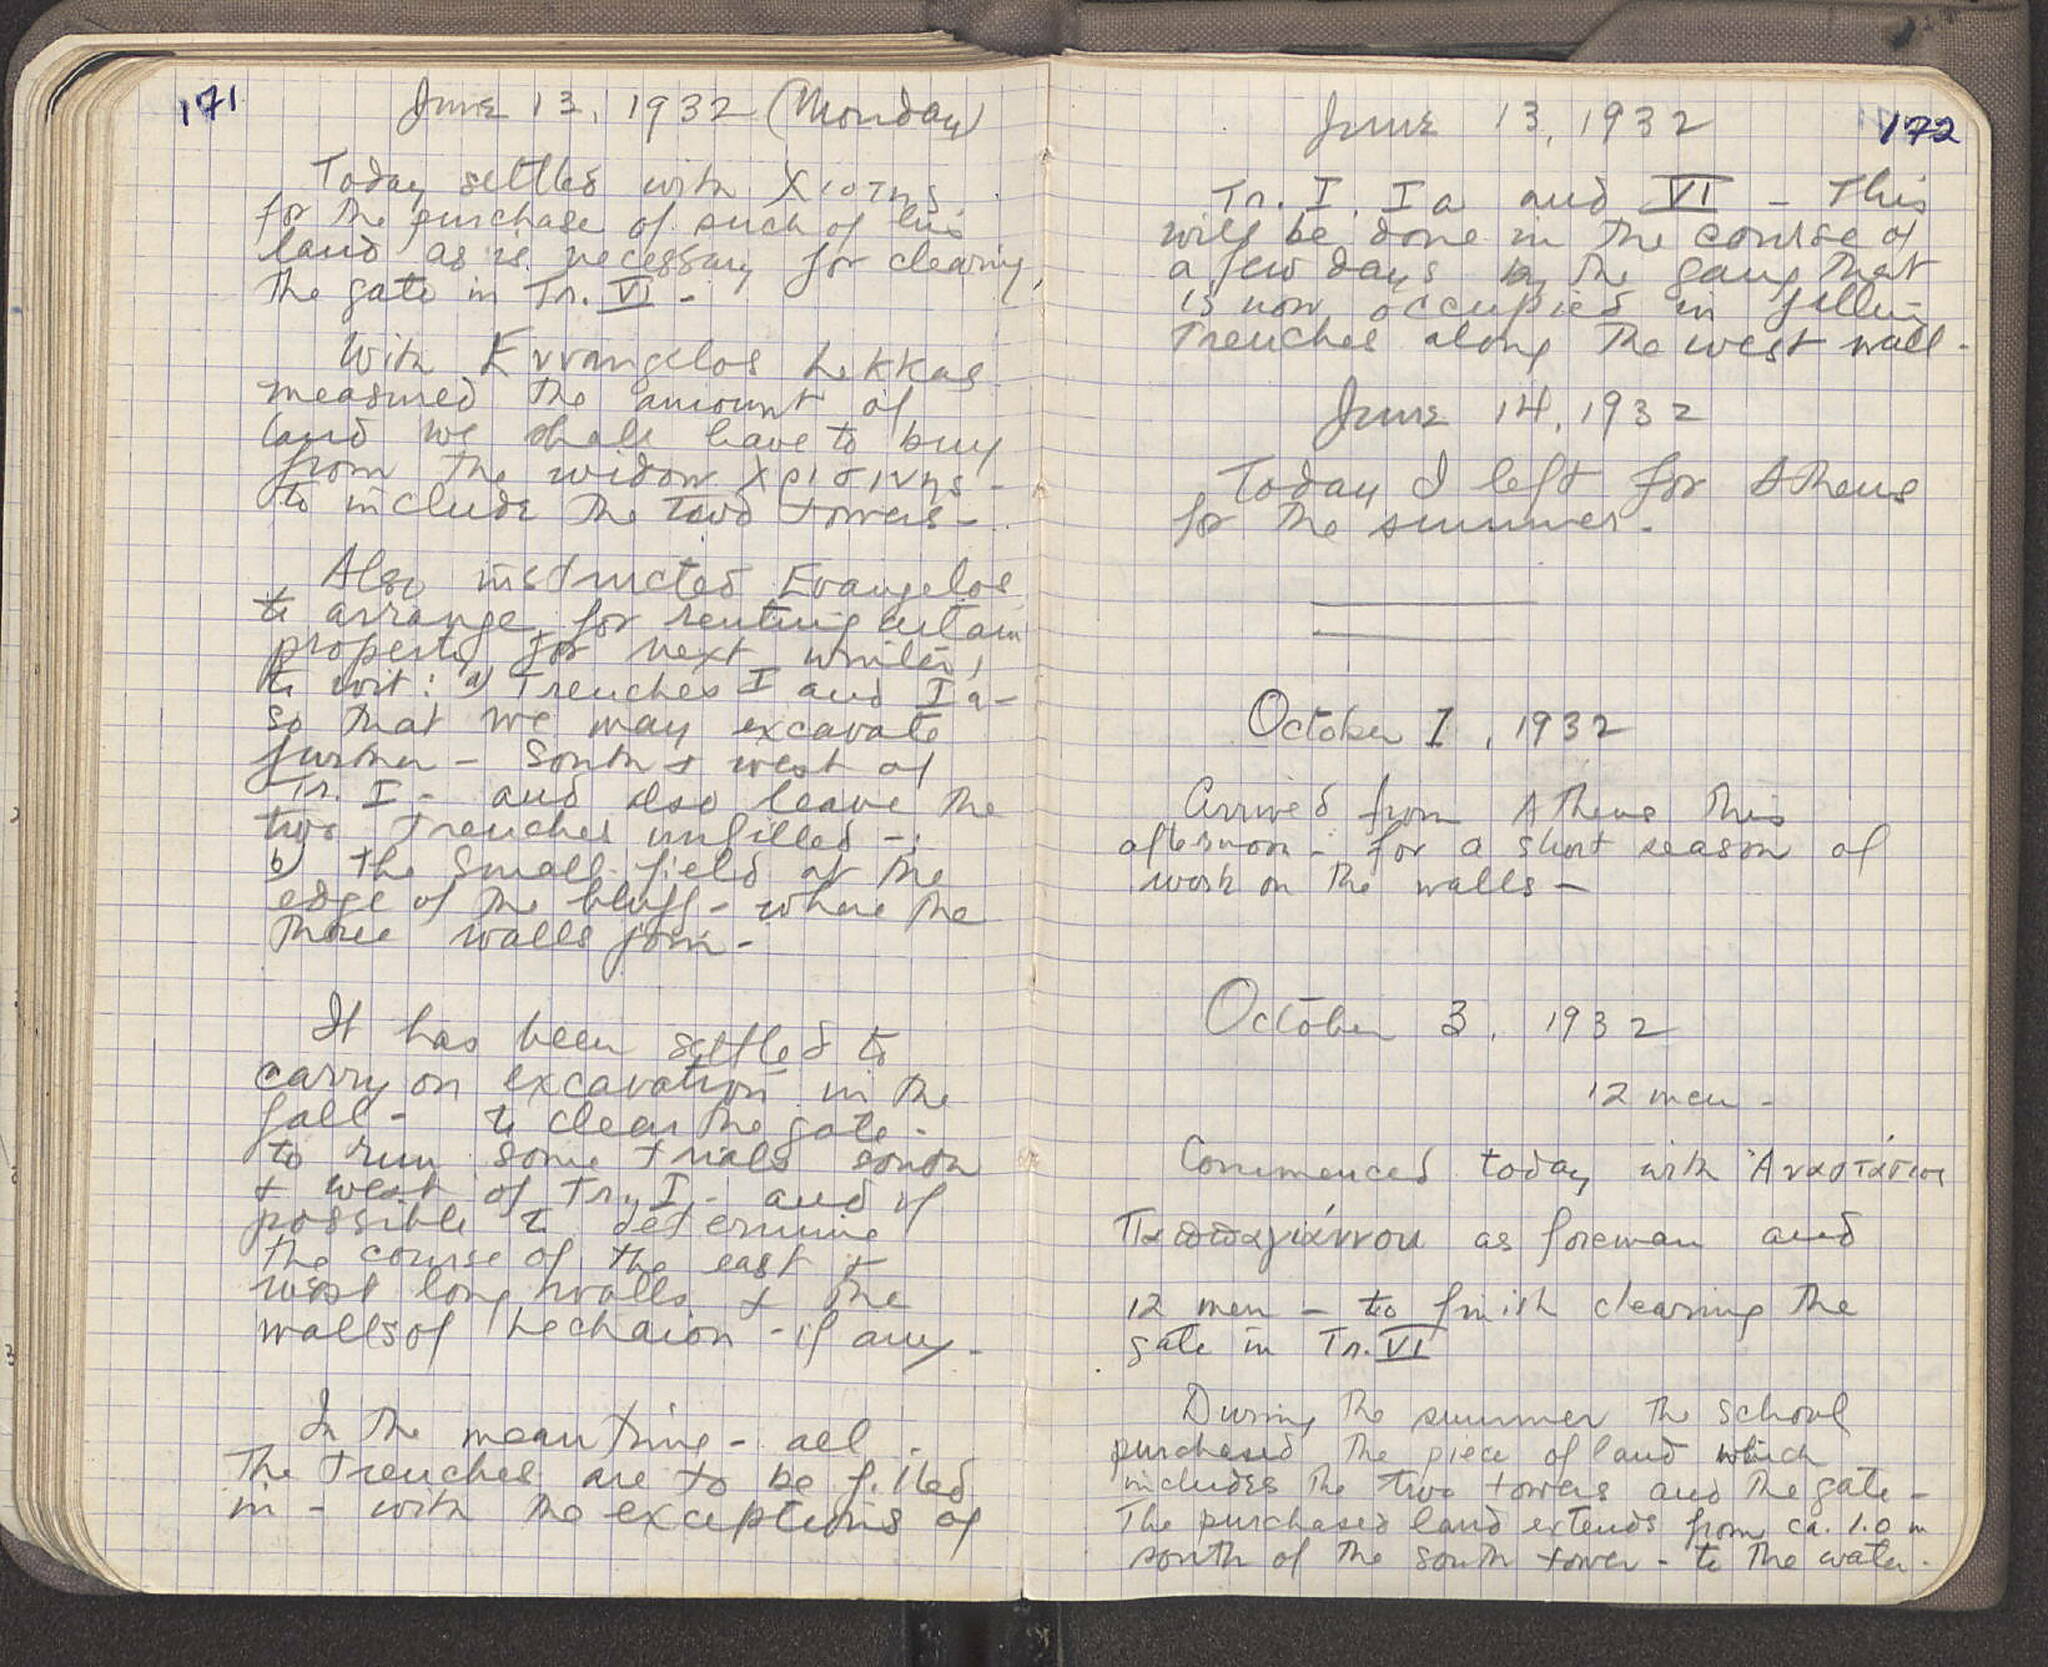 171
June 13, 1932 (Monday)
Today settled with Χιοτης
for the purchase of such of his
land as is necessary for clearing
the gate in Tr. VI -
With Evvangelos Lekkas
measured the amount of
land we shall have to buy
from the widow Χριστινης -
to include the two towers -
Also instructed Evangelos
to arrange for renting certain
property for next winter,
to wit: a) Trenches I and Ia -
so that we may excavate
further - South & west of
Tr. I - and also leave the
two trenches unfilled - ;
b) the small field at the
edge of the bluff - where the
three walls join -
It has been settled to
carry on excavation in the
fall - to clear the gate -
to run some trials south
& west of Tr. I - and if
possible to determine
the course of the east &
west long walls & the
walls of Lechaion - if any -
In the mean time - all
the trenches are to be filled
in - with the exceptions of
172
June 13, 1932
Tr. I, Ia and VI - This
will be done in the course of
a few days by the gang that
is now occupied in filling
trenches along the west wall -
June 14, 1932
Today I left for Athens
for the summer -
October 1, 1932
Arrived from Athens this
afternoon - for a short season of
work on the walls -
October 3, 1932
12 men -
Commenced today with Ἀναστάσιος
Παππαγιάννου as foreman and
12 men - to finish clearing the
gate in Tr. VI
During the summer the school
purchased the piece of land which
includes the two towers and the gate -
The purchased land extends from ca. 1.0 m
south of the south tower - to the water -